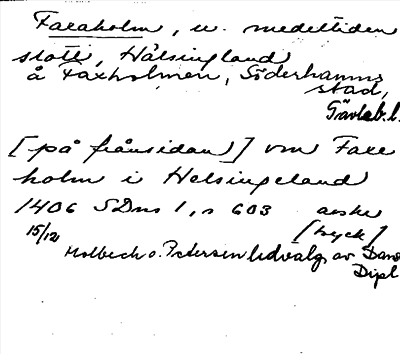 Faxaholm, u. medeltiden
slott, Hälsingland
å Faxholmen, Söderhamns
stad,
Gävleb. l.
[på frånsidan] vm Faxe
holm i Helsingeland
1406 SDns 1, s 603 avskr
15/12 [tryck]
Molbech o. Petersen Udvalg av Danske
Dipl